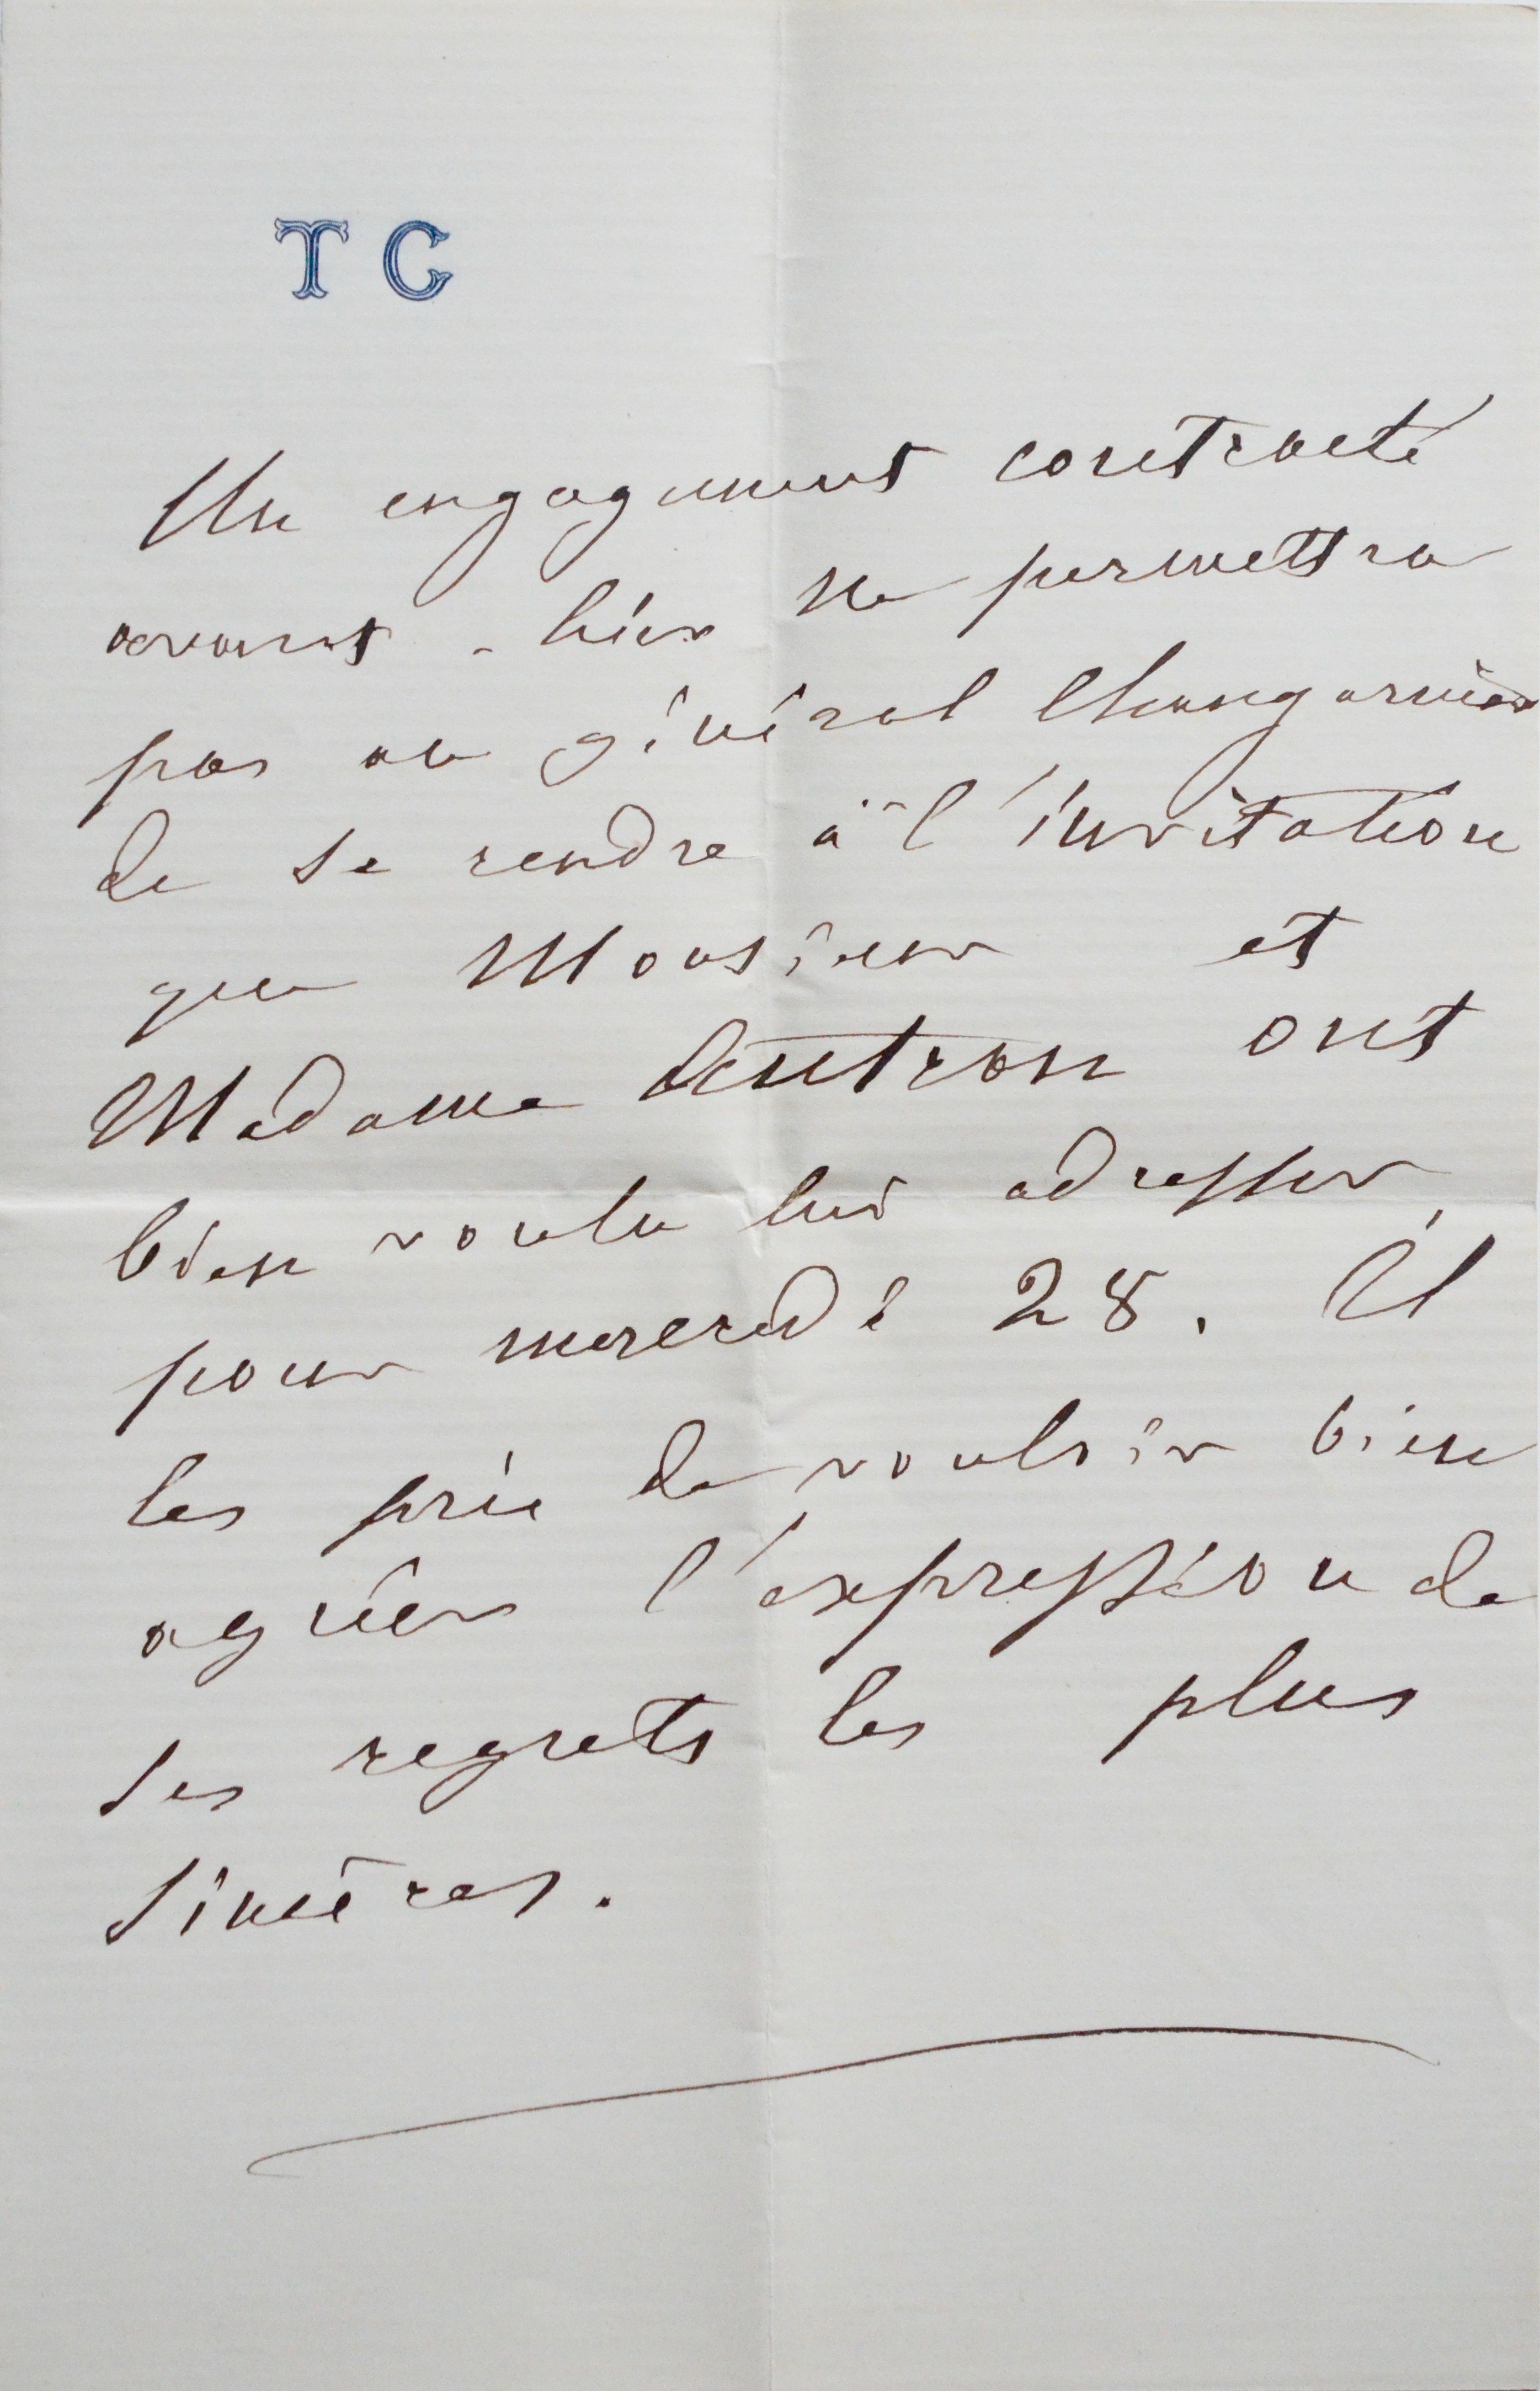 T C
Un engagement contracté
avant-hier ne permettra
pas au général Changarnier
de se rendre à l'invitation
que Monsieur et
Madame ont
bien voulu lui adresser
pour mercredi 28. Il
les prie de vouloir bien
agréer l'expression de
ses regrets les plus
sincères.